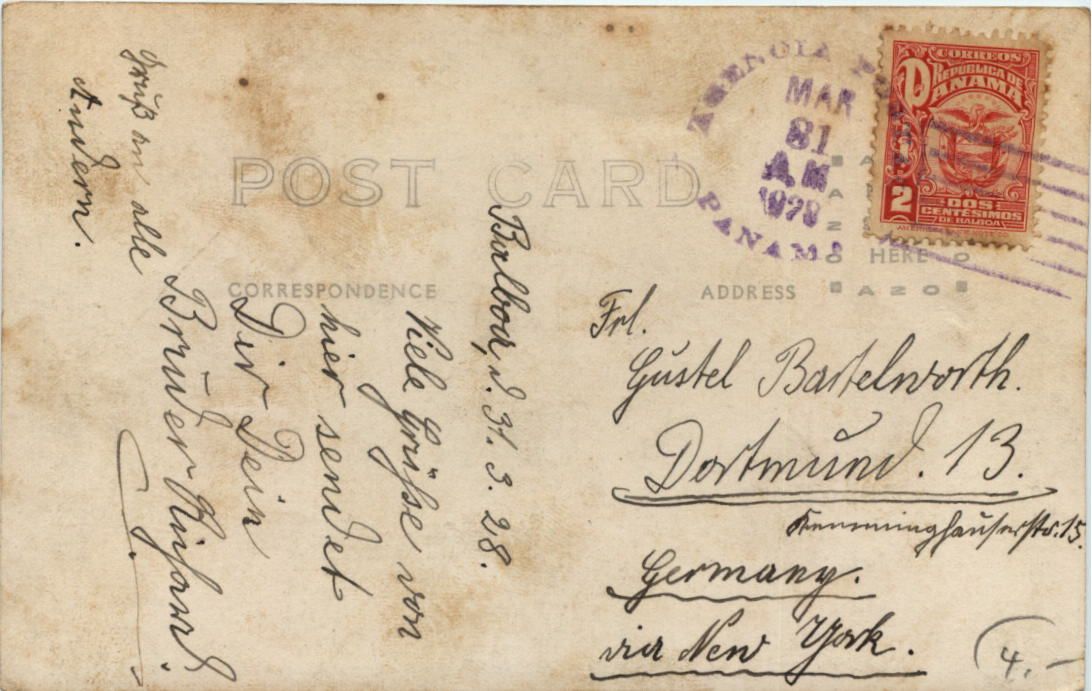 POST CARD
CORRESPONDENCE
ADDRESS
HERE
AZO
CORREOS
REPUBLICA DE
PANAMA
2
DOS
CENTÉSIMOS
DE BALBOA
AGENCIA
MAR
31
AM
PANAMA
Balboa, d. 31. 3. 28.
Viele Grüße von
hier sendet
Dir Dein
Bruder Richard.
Gruß an alle
Andern.
Frl.
Gustel Bartelworth.
Dortmund. 13.
Kemminghauserstr. 15.
Germany.
via New York.
4.-